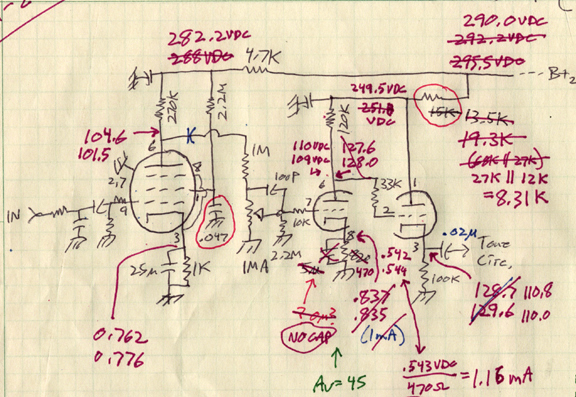 290.0VDC
292.2VDC
295.5VDC
282.2VDC
288VDC
4.7K
--- B+2
249.5VDC
251.8
VDC
15K
13.5K
19.3K
(60K || 27K)
27K || 12K
= 8.31K
270K
2.2M
120K
104.6
101.5
K
1M
110VDC
109VDC
127.6
128.0
6
6
1
2.7
100P
33K
IN
9
7
10K
2
.047
2.2M
8
3
3
.02µ
Tone
Circ.
25µ
1K
1MA
820
470
.542
.544
100K
.837
.835
(1mA)
128.7 110.8
129.6 110.0
NO CAP
0.762
0.776
Av=45
.543VDC
470Ω
=1.16mA